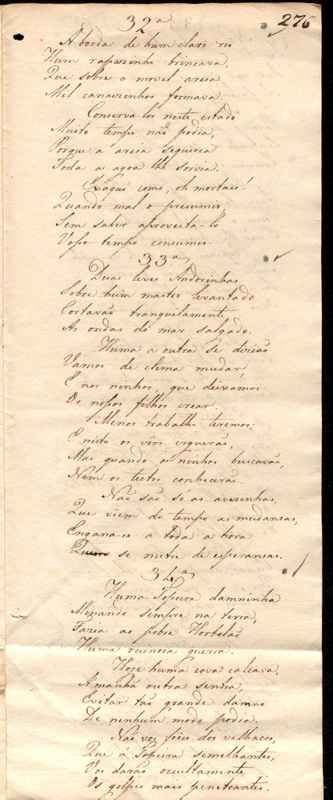 276
32ª
A borda de hum claro rio
Hum rapazinho brincava,
Que sobre o movel areia
Mil canaesinhos formava.
Conserva-los neste estado
Muito tempo não podia,
Porque a areia sequiosa
Toda a agoa lhe sorvia.
Eis aqui como, oh mortaes!
Quando mal o presumis,
Sem saber aproveita-lo
Vosso tempo consumis.
33ª
Duas leves Andorinhas
Sobre hum mastro levantado
Cortavão tranquilamente
As ondas do mar salgado.
Huma a outra se dizião
Vamos de clima mudar,
E nos ninhos, que deixamos
Os nossos filhos crear.
Menos trabalho teremos;
E nisto os vôos erguerão,
Mas quando os ninhos buscarão,
Nem os tectos conhecerão.
Não são só as avesinhas,
Que vêem do tempo as mudanças,
Engana-se a toda a hora
Quem se nutre de esperanças.
34ª
Huma Topeira damninha
Minando sempre na terra,
Fazia ao pobre Hortelão
Huma ruinosa guerra.
Hoje huma cova calcava,
A manhã outra sentia,
Evitar tão grande damno
De nenhum modo podia.
Não vos fieis dos velhacos,
Que á Topeira semelhantes,
Vos darão occultamente
Os golpes mais penetrantes.